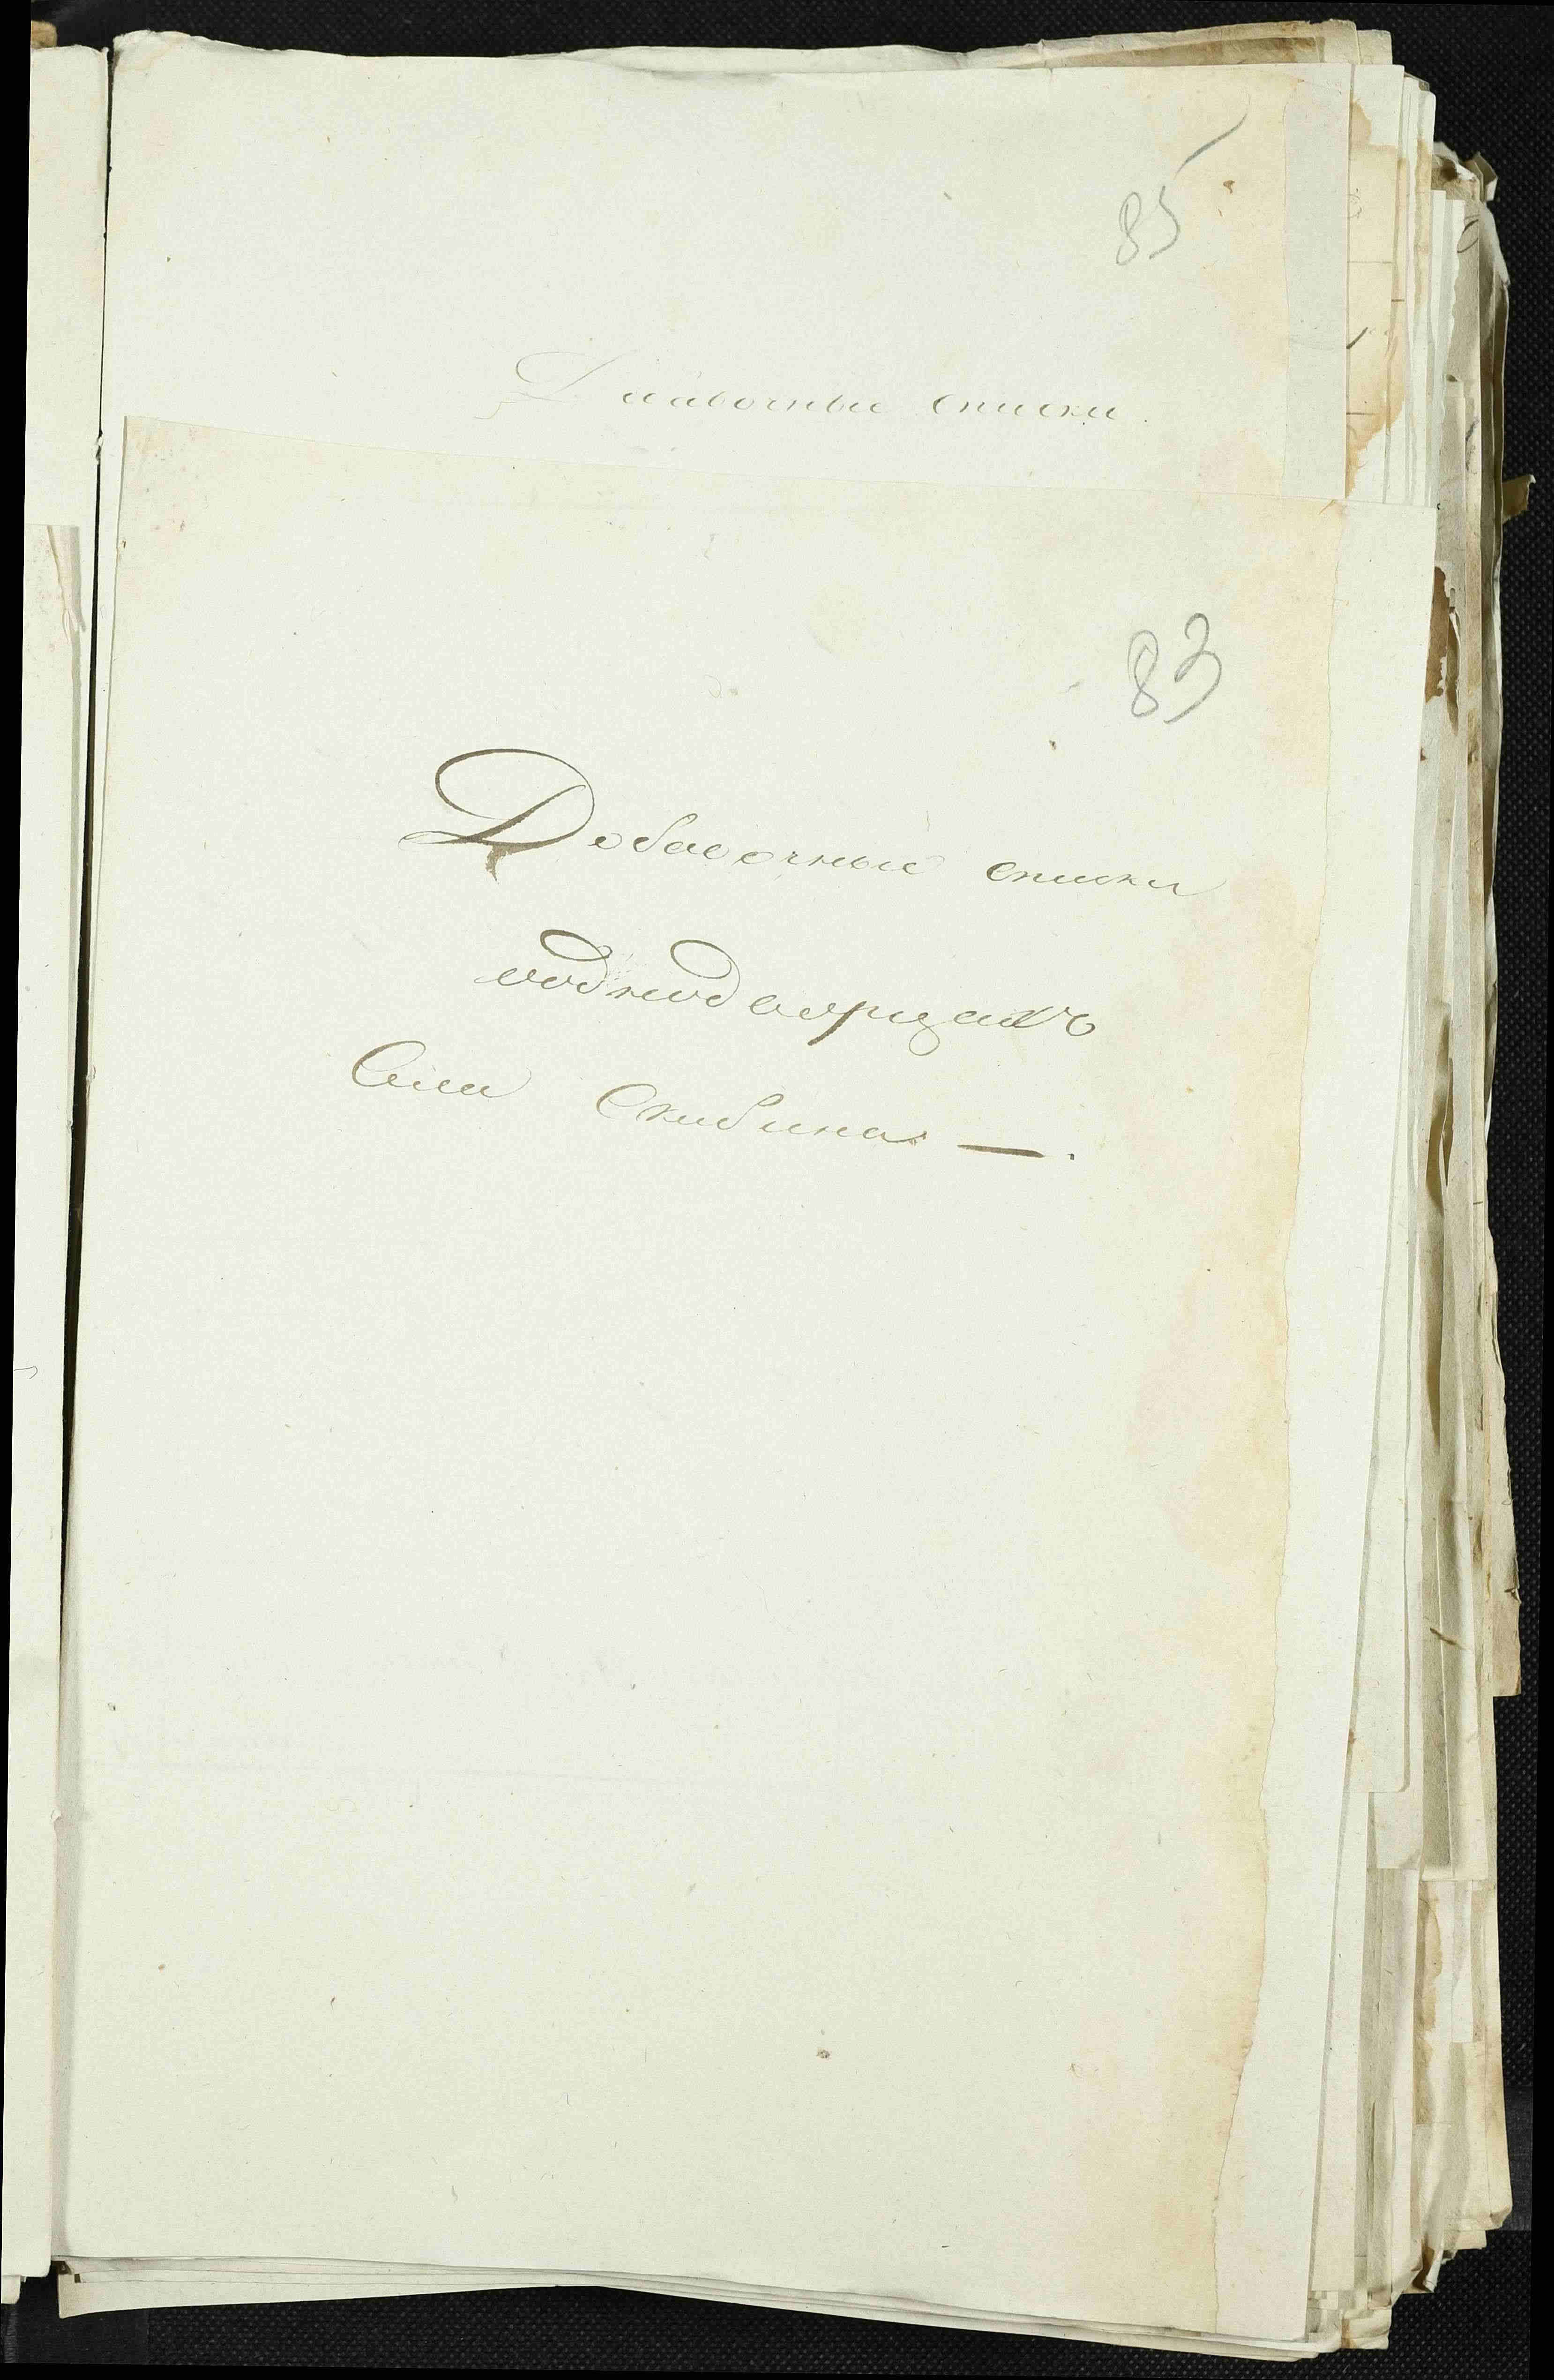 85
Добавочные списки.
83
Добавочные списки
однодворцамъ
Села Скибина —.